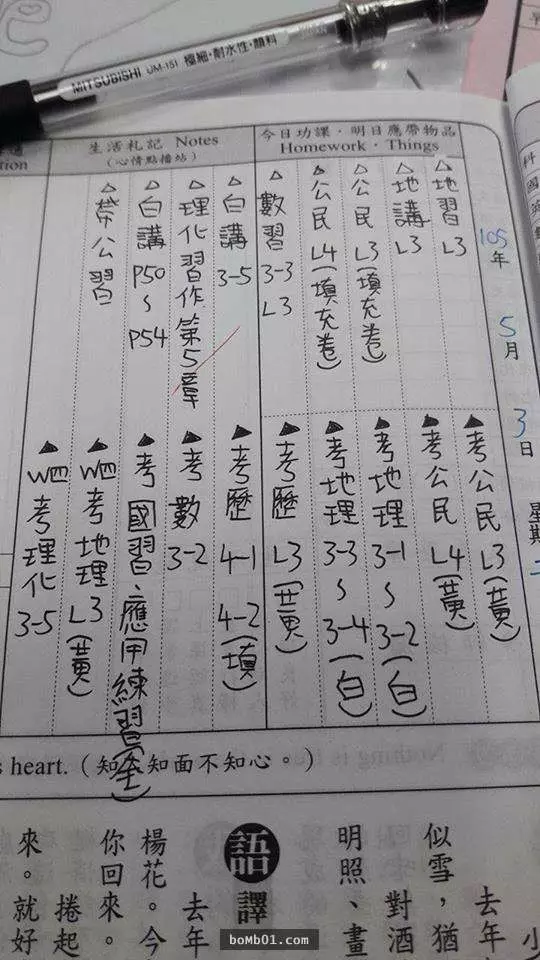 MITSUBISHI UM-151 極細・耐水性・顏料
今日功課・明日應帶物品
Homework・Things
生活札記 Notes
(心情點播站)
105年
5月
3日
星期二
△地習L3
△地講L3
△公民L3(填充卷)
△公民L4(填充卷)
△數習3-3 L3
△白講3-5
△理化習作第5章
△白講P50~P54
△帶公習
▲考公民L3(黃)
▲考公民L4(黃)
▲考地理3-1~3-2(白)
▲考地理3-3~3-4(白)
▲考歷L3(黃)
▲考歷4-1 4-2(填)
▲考數3-2
▲考國習、應用練習(全)
▲W四考地理L3(黃)
▲W四考理化3-5
s heart.(知人知面不知心。)
去年
似雪,猶
對酒
明照、畫
語譯
去年
楊花。今
你回來。
捲起
來。就好
boMb01.com